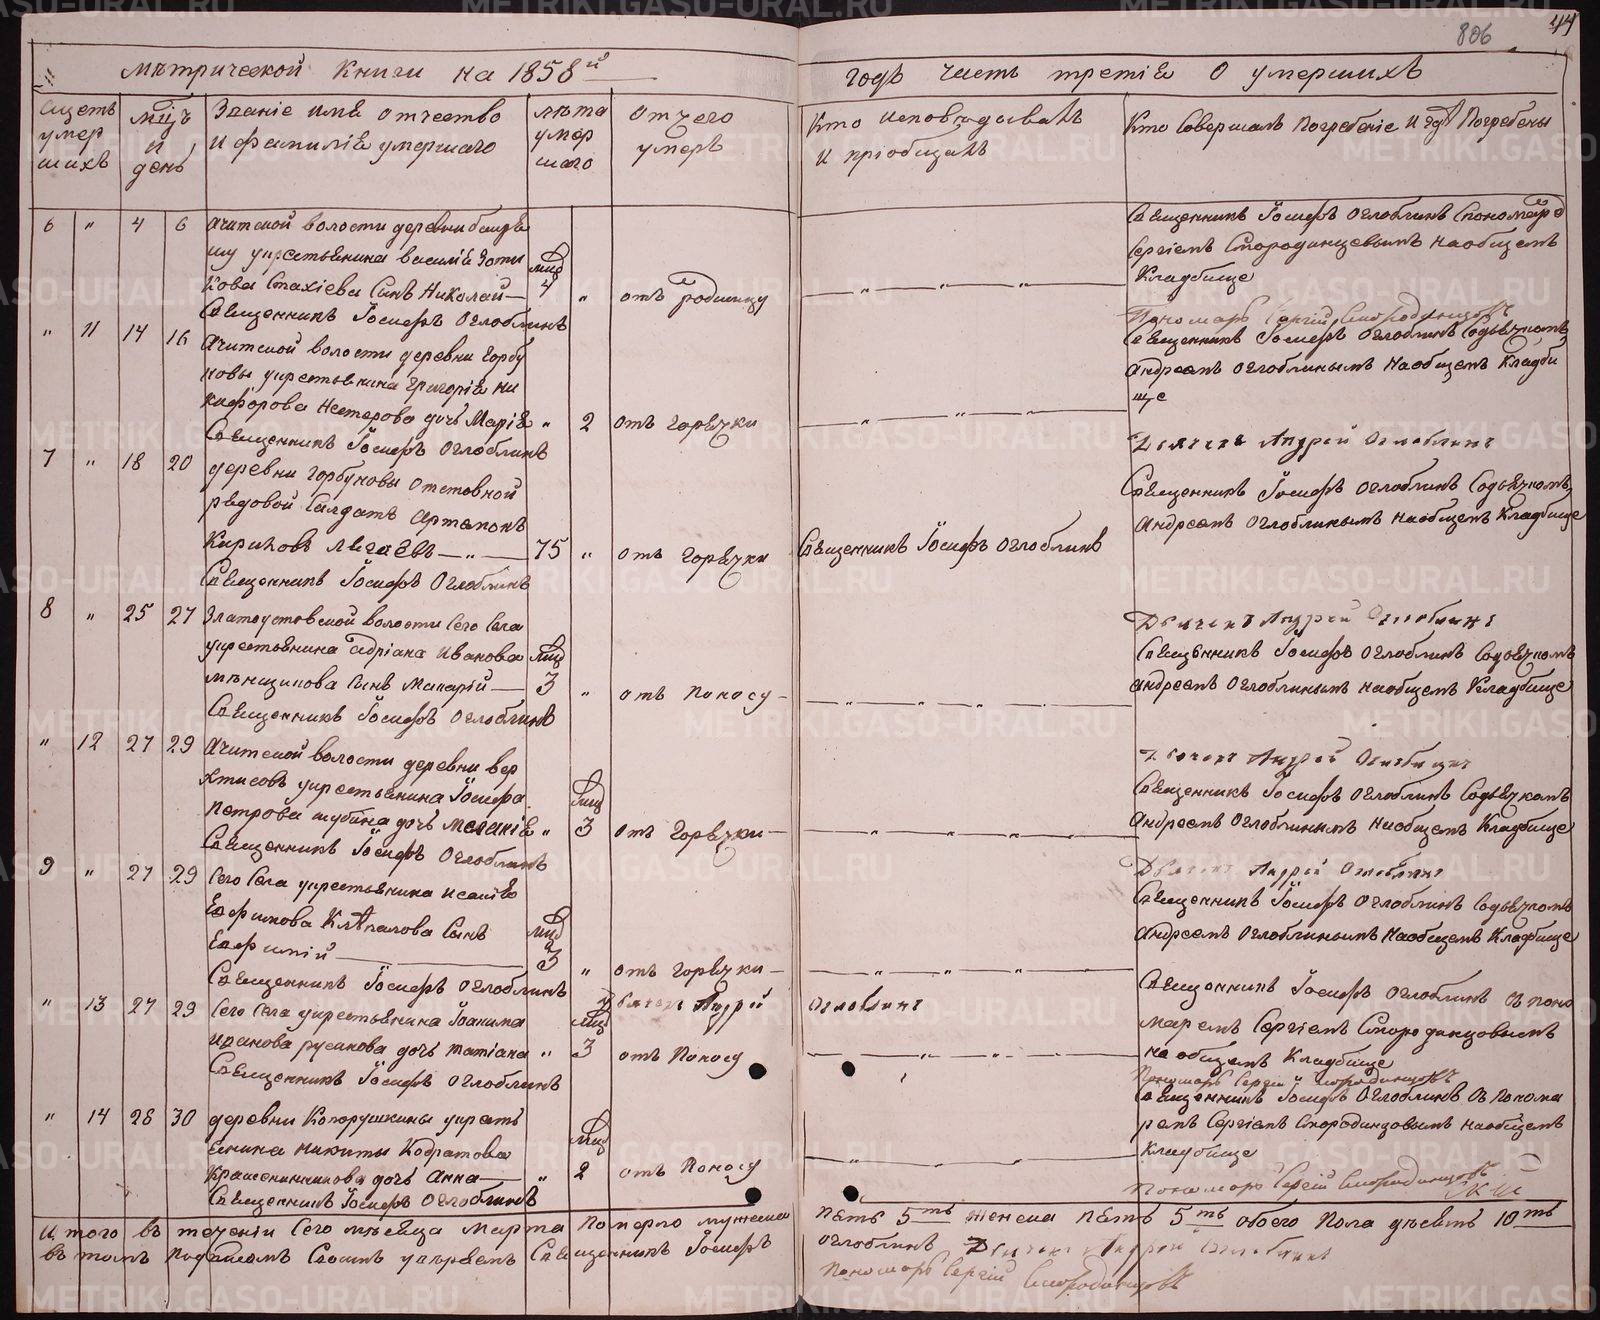 806
44
Метрической книги на 1858й
годъ часть третія о умершихъ
Счетъ умершихъ
Мцъ и день
Званіе имя отчество и фамилія умершаго
лѣта умершаго
отчего умеръ
Кто исповѣдывалъ и пріобщалъ
Кто совершалъ погребеніе и гдѣ погребены
6 " 4 6
Ачитской волости деревни
крестьянина Василія Зоти
кова Стахіева сынъ Николай
мцъ 4 "
отъ родимцу
Священникъ Іосифъ Оглоблинъ
Священникъ Іосифъ Оглоблинъ спономаре
Сергіемъ Смородинцевымъ наобщемъ
Кладбище
Пономарь Сергій Смородинцовъ
" 11 14 16
Ачитской волости деревни Горбу
новы крестьянина Григорія Ни
кифорова Нестерова дочь Марія
" 2
отъ Горячки
Священникъ Іосифъ Оглоблинъ
Священникъ Іосифъ Оглоблинъ содьячкомъ
Андреемъ Оглоблинымъ наобщемъ Кладби
ще
Дьячекъ Андрей Оглоблинъ
7 " 18 20
деревни Горбуновы отставной
рядовой Салдатъ Артамонъ
Кириловъ
75 "
отъ Горячки
Священникъ Іосифъ Оглоблинъ
Священникъ Іосифъ Оглоблинъ
Священникъ Іосифъ Оглоблинъ содьячкомъ
Андреемъ Оглоблинымъ наобщемъ Кладбище
Дьячекъ Андрей Оглоблинъ
8 " 25 27
Златоустовской волости сего села
крестьянина Адріана Иванова
сынъ Макарій
мцъ 3 "
отъ Поносу
Священникъ Іосифъ Оглоблинъ
Священникъ Іосифъ Оглоблинъ содьячкомъ
Андреемъ Оглоблинымъ наобщемъ Кладбище
Дьячекъ Андрей Оглоблинъ
" 12 27 29
Ачитской волости деревни вер
крестьянина Іосифа
Петрова Шубина дочь Меланія
" мцъ 3
отъ Горячки
Священникъ Іосифъ Оглоблинъ
Священникъ Іосифъ Оглоблинъ содьячкомъ
Андреемъ Оглоблинымъ наобщемъ Кладбище
Дьячекъ Андрей Оглоблинъ
9 " 27 29
Сего села крестьянина Исаія
Евфимова сынъ
Евфимій
мцъ 3 "
отъ Горячки
Священникъ Іосифъ Оглоблинъ
Священникъ Іосифъ Оглоблинъ содьячкомъ
Андреемъ Оглоблинымъ наобщемъ Кладбище
Дьячекъ Андрей Оглоблинъ
" 13 27 29
Сего села крестьянина Іоакима
Иванова Русинова дочь Татіана
" мцъ 3
отъ Поносу
Священникъ Іосифъ Оглоблинъ
Священникъ Іосифъ Оглоблинъ съ поно
маремъ Сергіемъ Смородинцовымъ
на общемъ Кладбище
Пономарь Сергій Смородинцовъ
" 14 28 30
деревни Копорушкины кресть
янина Никиты Кодратова
Крашенинникова дочь Анна
" мцъ 2
отъ Поносу
Священникъ Іосифъ Оглоблинъ
Священникъ Іосифъ Оглоблинъ съ понома
ремъ Сергіемъ Смородинцовымъ наобщемъ
Кладбище
Пономарь Сергій Смородинцовъ
Итого въ теченіи сего мѣсяца марта померло мужеска
пять 5ть женска пять 5ть обоего пола десять 10ть
въ томъ подписомъ своимъ Священникъ Іосифъ
Оглоблинъ Дьячекъ Андрей Оглоблинъ
Пономарь Сергій Смородинцовъ
METRIKI.GASO-URAL.RU